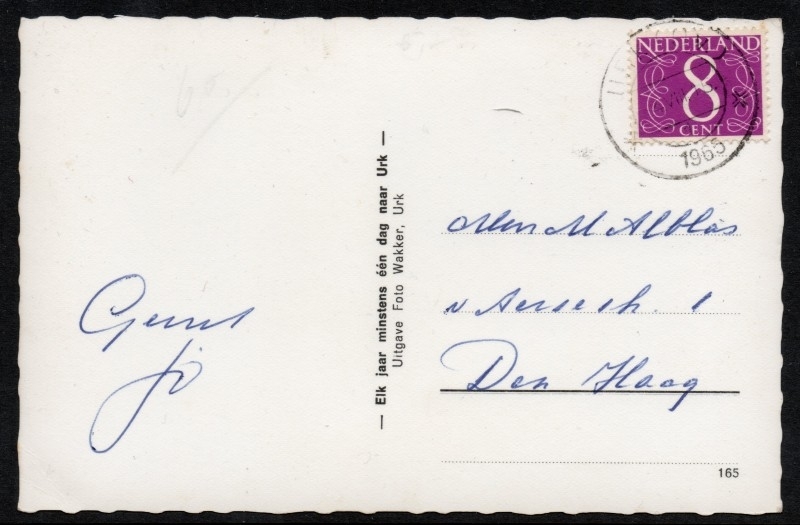 NEDERLAND
8
CENT
1965
— Elk jaar minstens één dag naar Urk —
Uitgave Foto Wakker, Urk
M Alblas
1
Den Haag
Gerrit
Jo
165